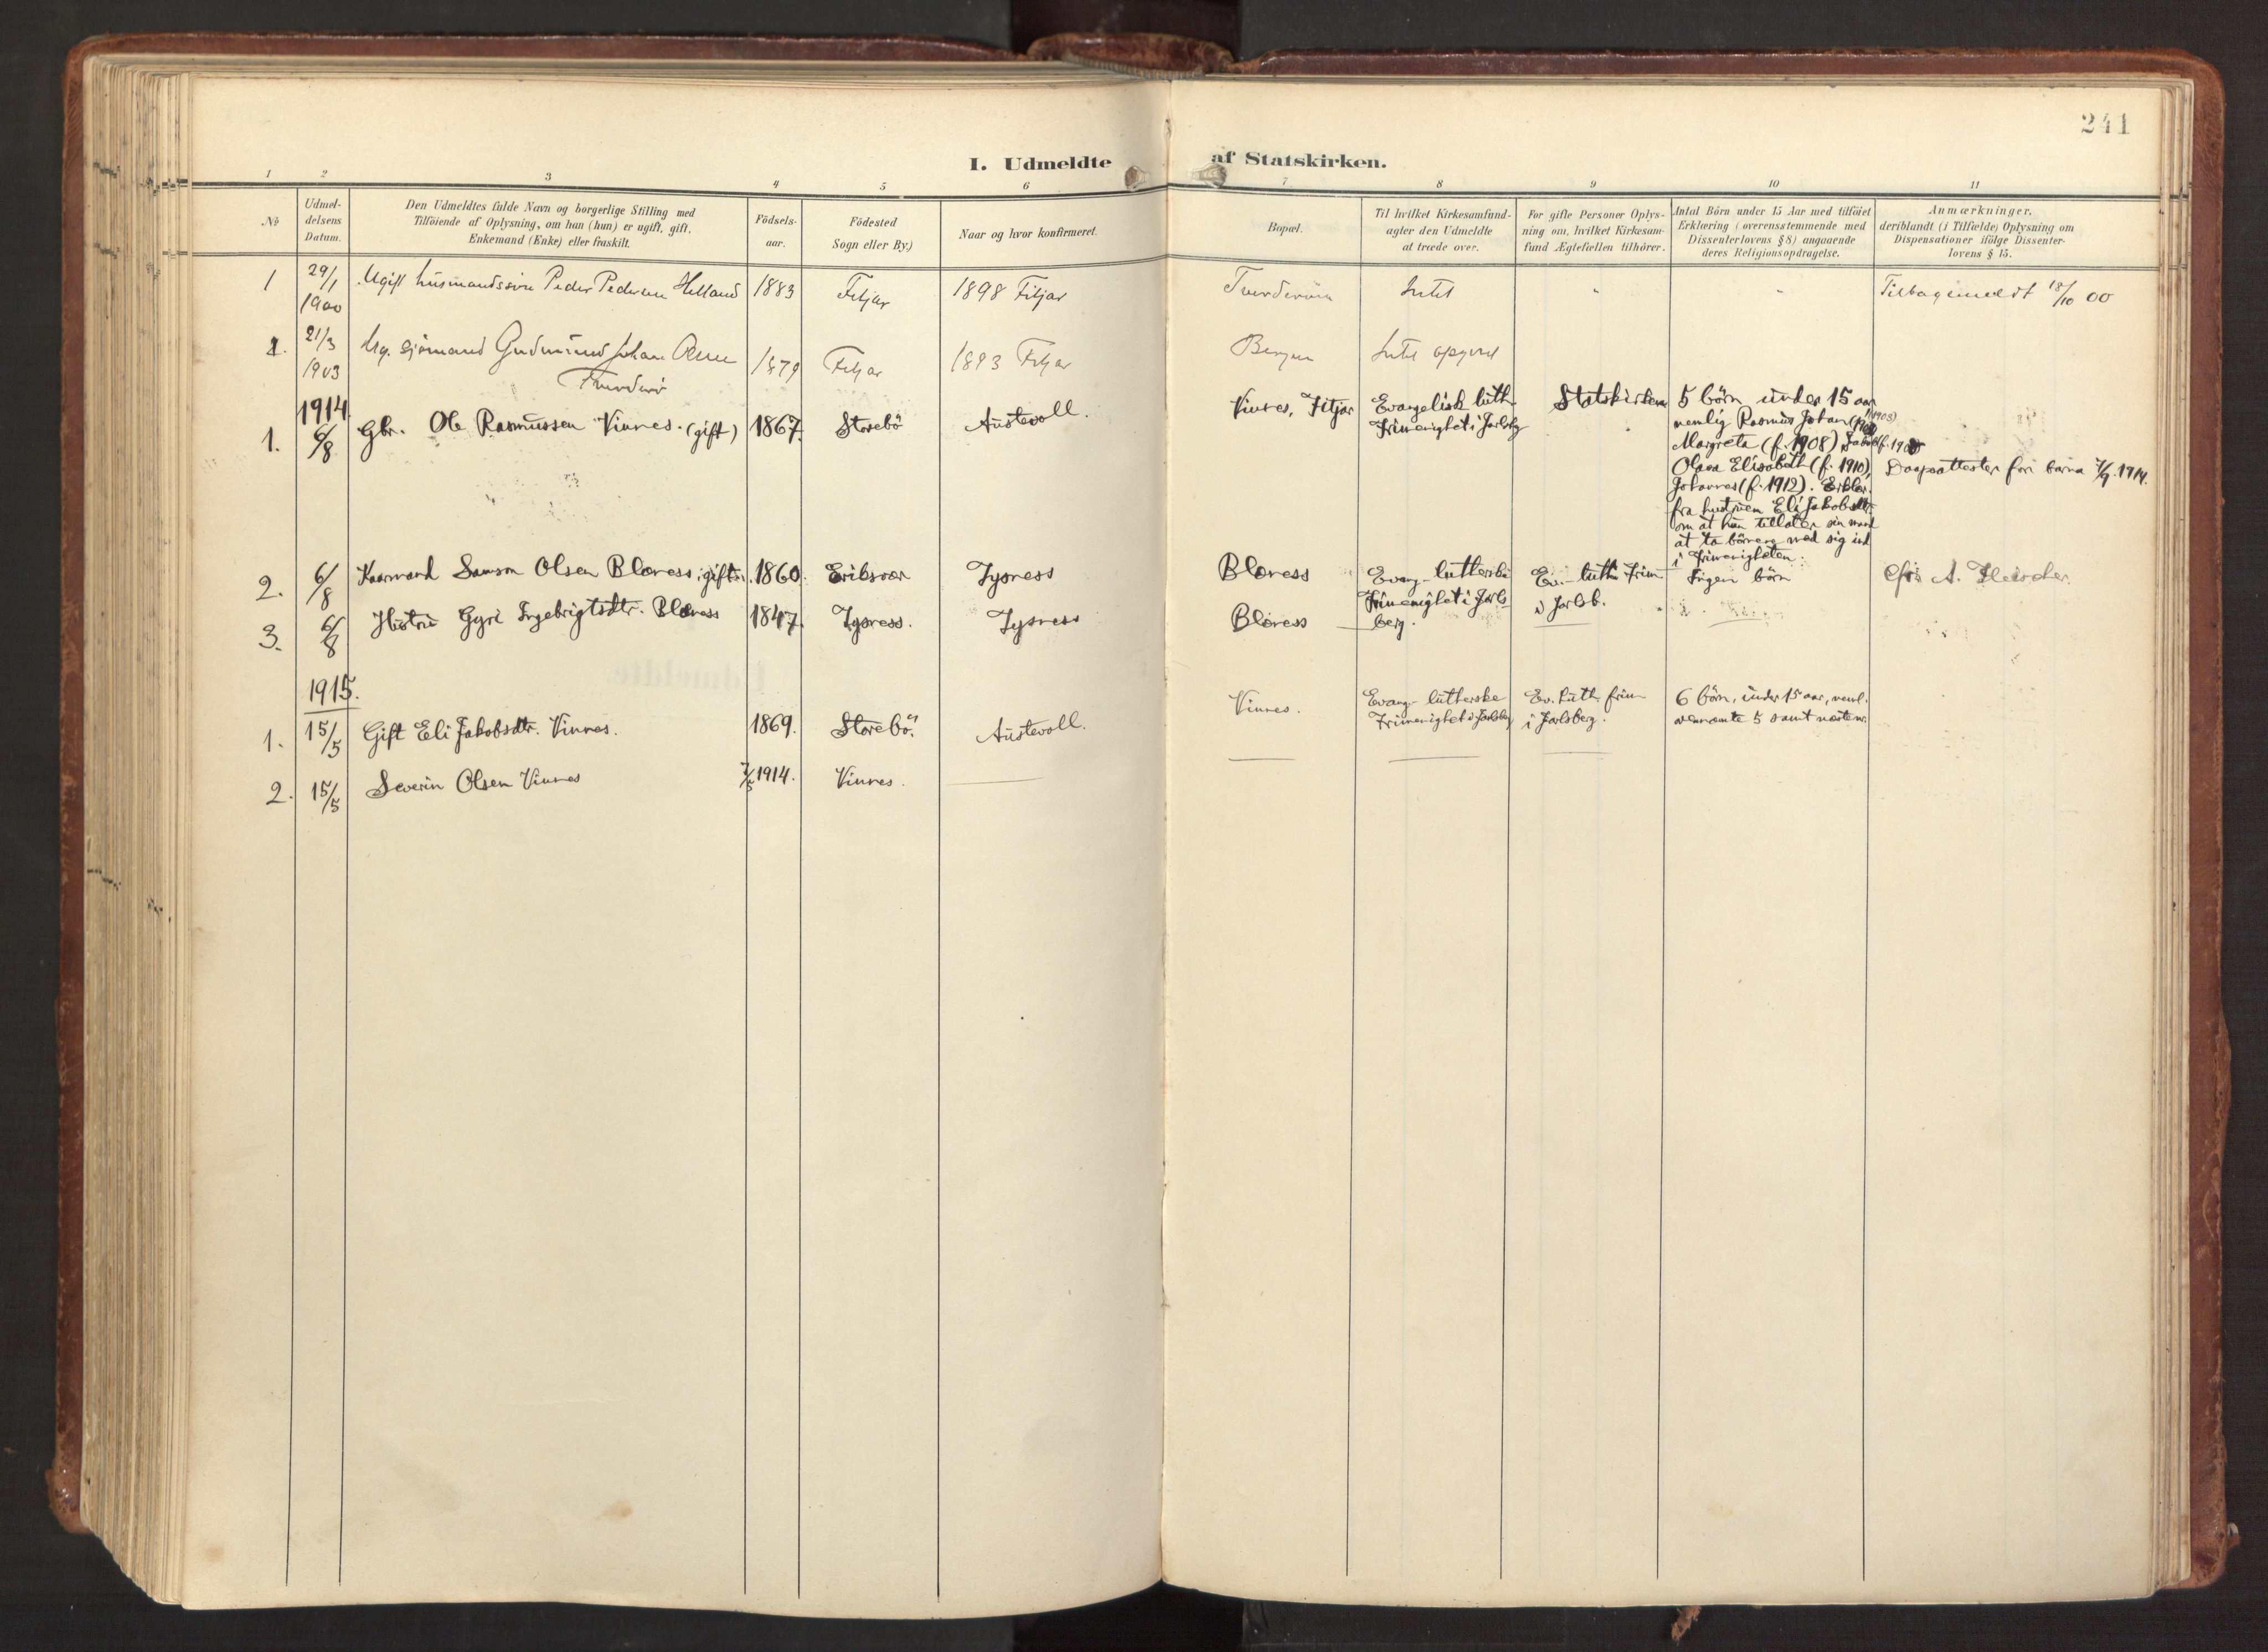 241
I. Udmeldte af Statskirken.
1 2 3 4 5 6 7 8 9 10 11
No
Udmel-
delsens
Datum.
Den Udmeldtes fulde Navn og borgerlige Stilling med
Tilföiende af Oplysning, om han (hun) er ugift, gift,
Enkemand (Enke) eller fraskilt.
Födsels-
aar.
Födested
Sogn eller By.)
Naar og hvor konfirmeret.
Bopæl.
Til hvilket Kirkesamfund-
agter den Udmeldte
at træde over.
For gifte Personer Oplys-
ning om, hvilket Kirkesam-
fund Ægtefællen tilhörer.
Antal Börn under 15 Aar med tilföiet
Erklæring (overensstemmende med
Dissenterlovens § 8) angaaende
deres Religionsopdragelse.
Anmærkninger,
deriblandt (i Tilfælde) Oplysning om
Dispensationer ifölge Dissenter-
lovens § 15.
1 29/1 Ugift husmandssön Peder Pedersen Helland 1883 Fitjar 1898 Fitjar Intet " " Tilbagemeldt 18/10 00
1900
21/3 Ug. sjömand Gudmund Johan 1879 Fitjar 1893 Fitjar Bergen Intet opgivet
1903
1914.
1. 6/8 Gbr. Ole Rasmussen Vinnes. (gift) 1867. Storebö Austevoll. Vinnes, Fitjar
Evangelisk luth.
Frimenighet i Jarlsbg
Statskirken
5 börn under 15 aar
nemlig Rasmus Johan (1903)
Margreta (f. 1908)
Olava Elisabeth (f. 1910),
Johannes (f. 1912). Erklær.
fra hustruen Eli Jakobsdtr.
om at hun tillater sin mand
at ta börnene med sig ind
i Frimenigheten.
Daapsattester for barna 7/9. 1914.
2. 6/8 Kaarmand Samson Olsen Blæness, gift. 1860. Eriksvær Tysness Blæness
Evang.-lutherske
Frimenighet i Jarls-
berg.
Ev.-luth. Frim
i Jarlsb.
Ingen börn
3. 6/8 Hustru Gyri Ingebrigtsdtr. Blæness 1847. Tysness. Tysness Blæness
1915.
1. 15/5 Gift Eli Jakobsdtr. Vinnes. 1869. Storebö. Austevoll. Vinnes.
Evang-lutherske
Frimenighet i Jarlsberg
Ev. luth. frim
i Jarlsberg.
6 börn, under 15 aar, neml.
ovennævnte 5 samt næste nr.
2. 15/5 Severin Olsen Vinnes 7/5 1914. Vinnes.